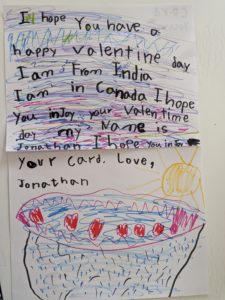 I hope You have a
happy valentine day
I am From India
I am in Canada I hope
You inJoy your valentime
day my Name is
Jonathan I hope you inJoy
your card. Love,
Jonathan